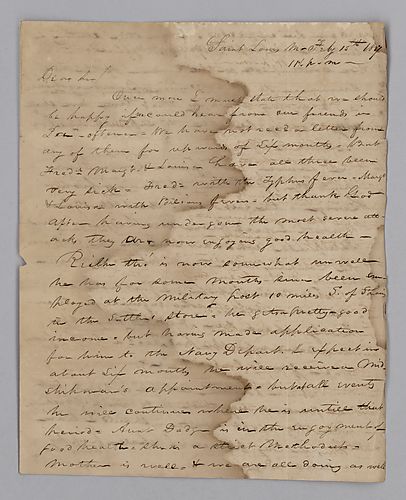 Saint Louis Mo Feby 15th
11 h. p. m —
Dear Sir
Once more I must state that we should
be happy if we could hear from our friends in
oftener. We have not rec'd a letter from
any of them for upwards of Six months. But
Fred. Margt. & Louisa have all three been
very sick. Fred. with the Typhus fever. Margt
& Louisa with Bilious fever. but thank God
after having undergone the most severe att-
acks they are now enjoying good health —
tho' is now somewhat unwell
he has for some months since been em-
ployed at the Military post 10 miles S. of St Louis
in the Sutlers Store. he gets a pretty good
income. but having made application
for him to the Navy Depart. I expect in
about Six months he will receive a Mid
Shipman's appointment. but at all events
he will continue where he is until that
period. Aunt is in the enjoyment of
good health. She is a strict Methodist.
Mother is well. & we are all doing as well